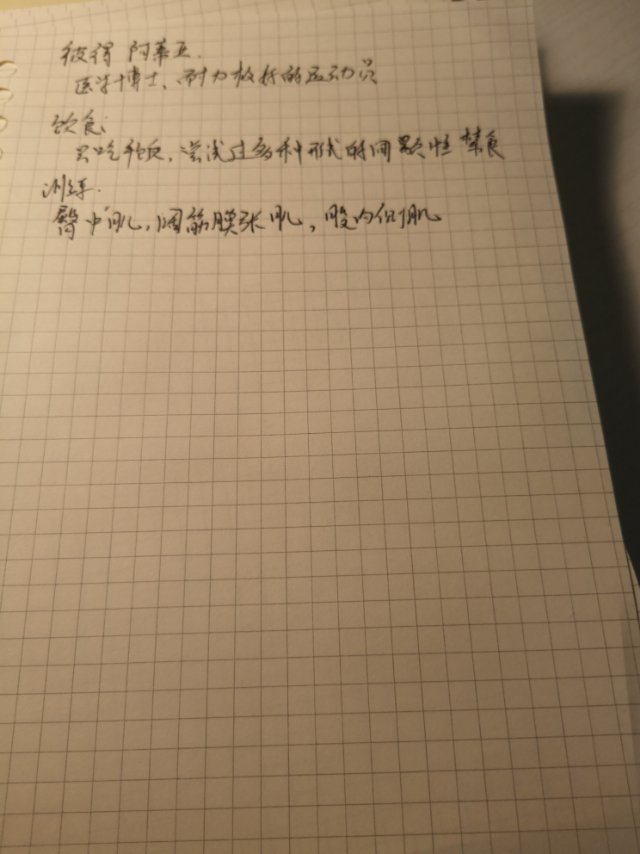 彼得 阿蒂亚.
医学博士、耐力极限的运动员
饮食:
只吃晚饭,尝试过多种形式的间歇性禁食
训练.
臀中肌,阔筋膜张肌,股内侧肌